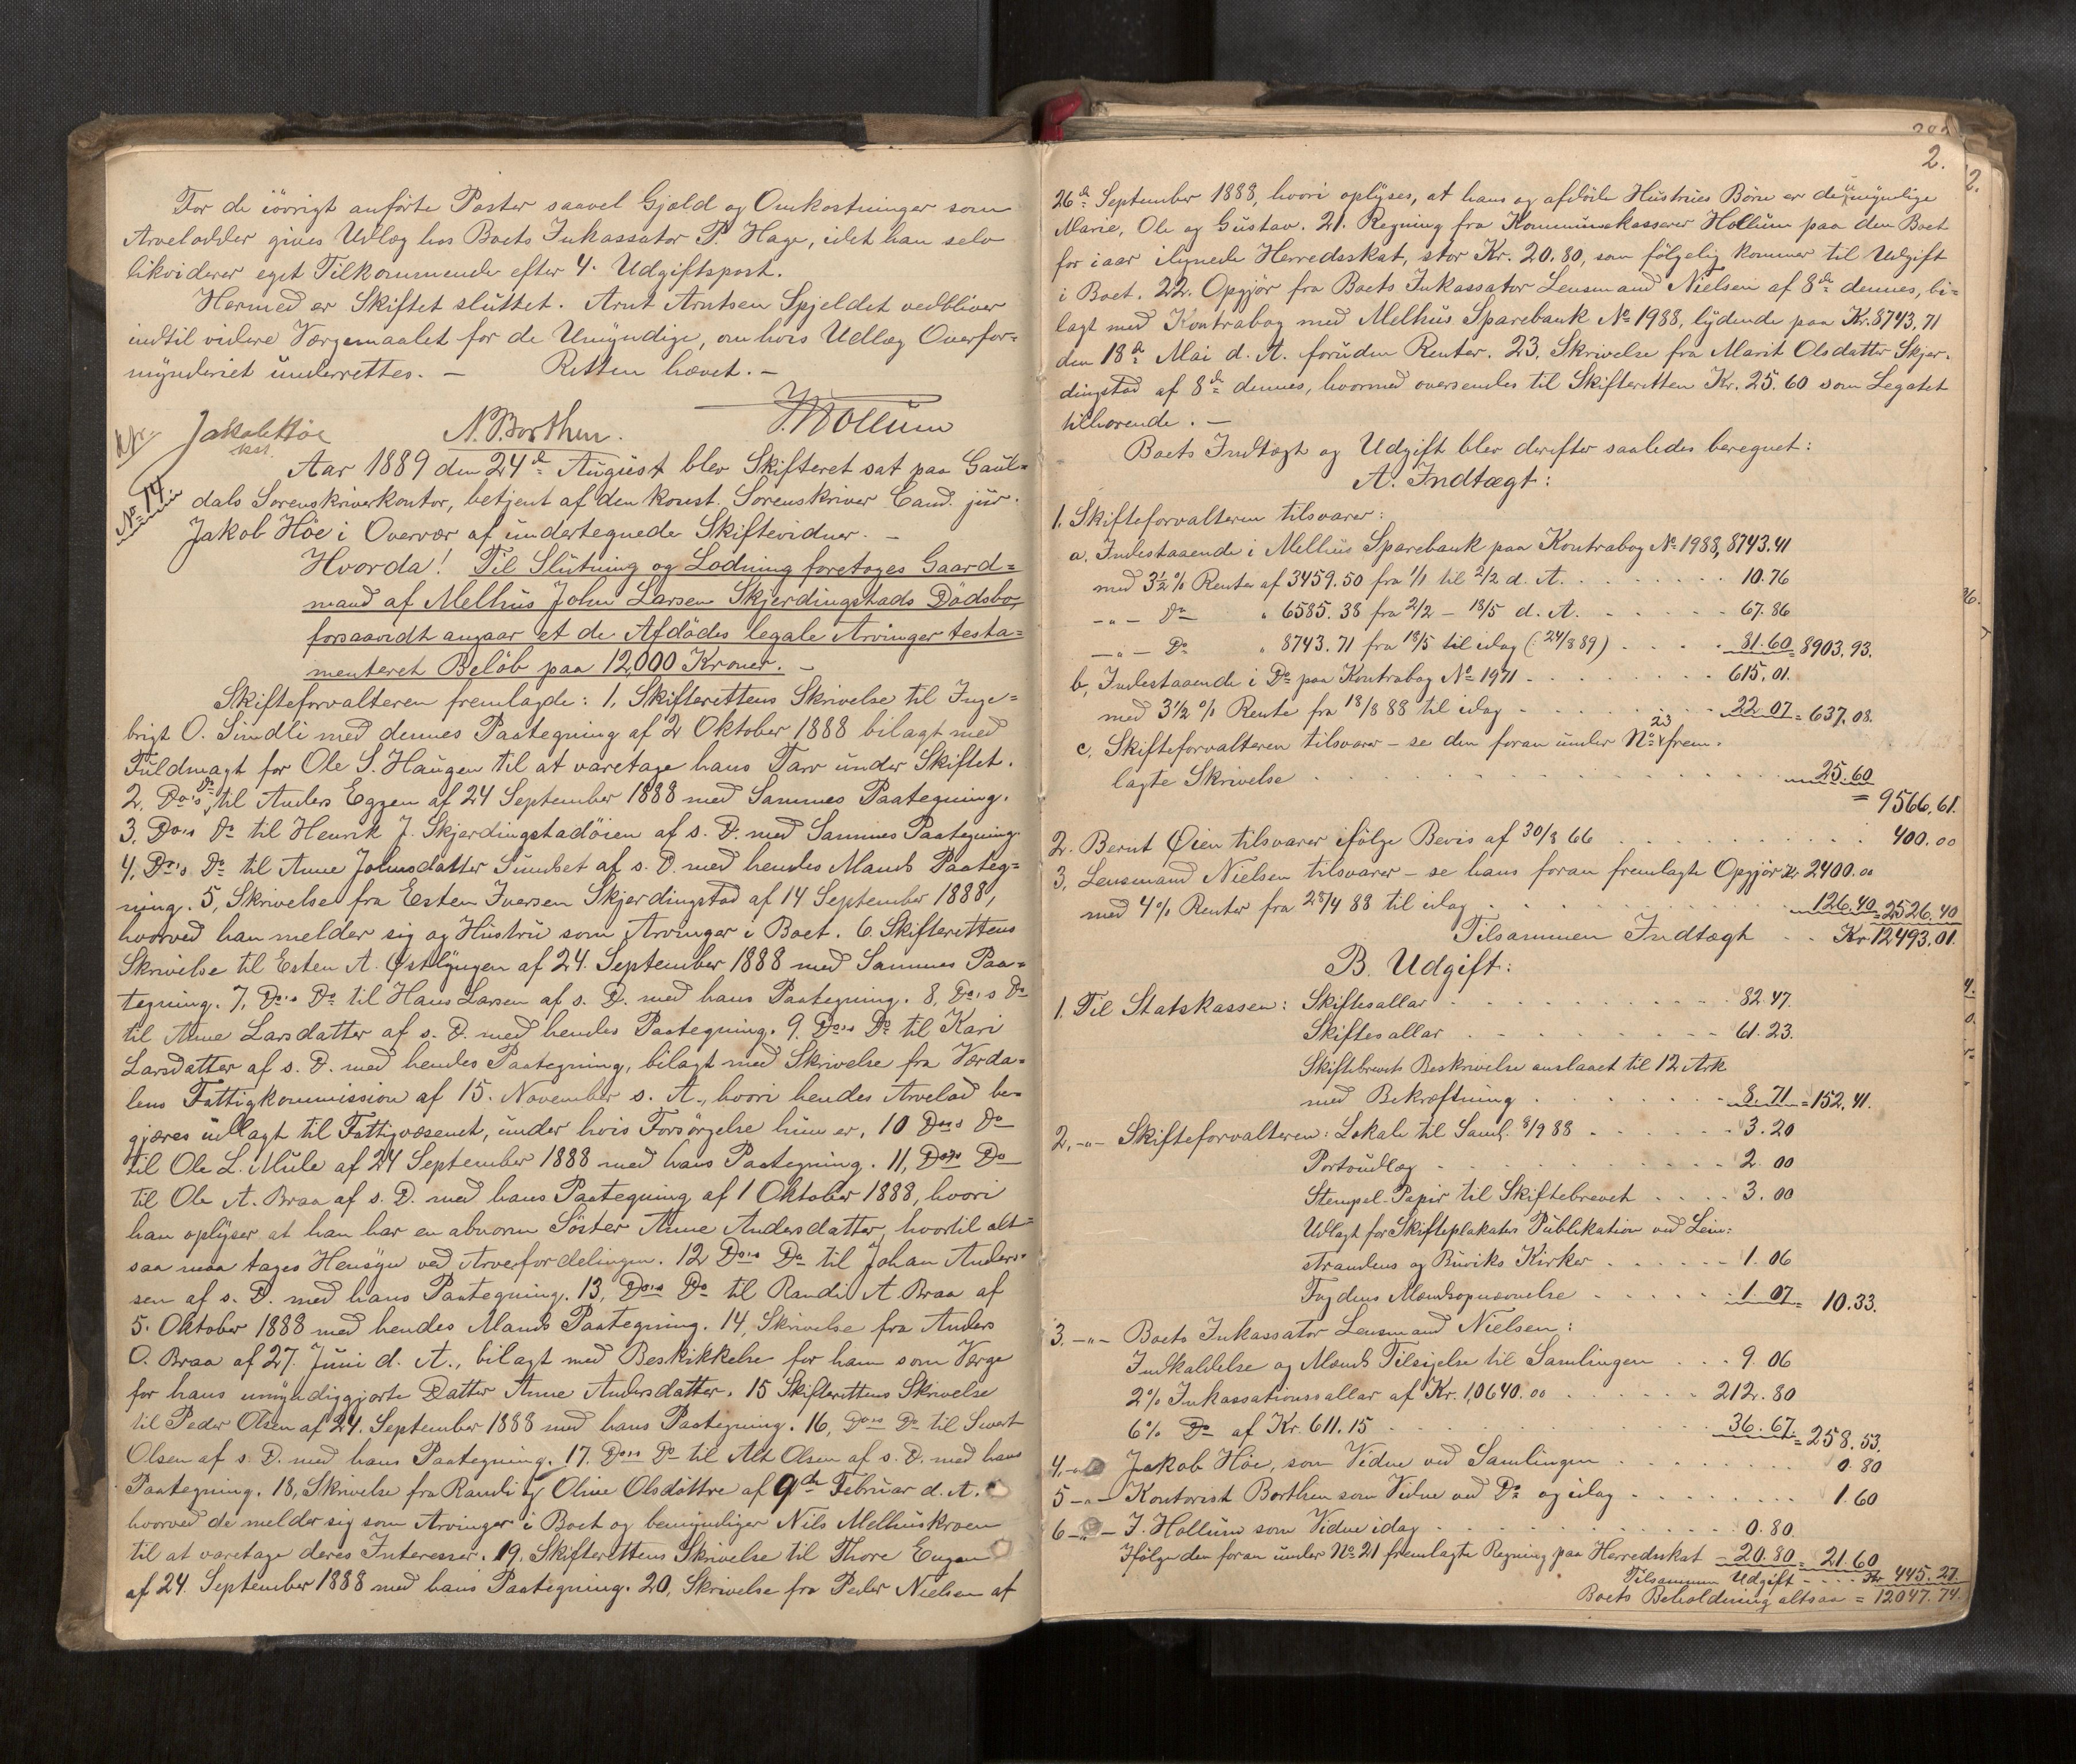 For de iövrigt anförte Poster saavel Gjæld og Omkostninger som
Arvelodder gives Udlæg hos Boets Inkassator P. Hage, idet han selv
likviderer eget Tilkommende efter 4. Udgiftspost.
Hermed er Skiftet sluttet. Arnt Arntsen Spjeldet vedbliver
indtil videre Værgemaalet for de Umyndige, om hvis Udlæg Overfor=
mynderiet underrettes. — Retten hævet. —
Jakob Höe
kst.
N. Borthen.
J. Hollum
No 14.
Aar 1889 den 24de August blev Skifteret sat paa Gaul=
dals Sorenskriverkontor, betjent af den konst. Sorenskriver Cand. jur.
Jakob Höe i Overvær af undertegnede Skiftevidner. —
Hvorda! Til Slutning og Lodning foretoges Gaard=
mand af Melhus John Larsen Skjerdingstads Dödsbo,
forsaavidt angaar et de Afdödes legale Arvinger testa=
menteret Belöb paa 12,000 Kroner. —
Skifteforvalteren fremlagde: 1, Skifterettens Skrivelse til Inge=
brigt O. Simdli med dennes Paategning af 2 Oktober 1888 bilagt med
Fuldmagt for Ole S. Haugen til at varetage hans Tarv under Skiftet.
2, Do's Do til Anders Eggen af 24 September 1888 med Sammes Paategning.
3, Do's Do til Henrik J. Skjerdingstadöien af s. D. med Sammes Paategning
4, Do's Do til Anne Johnsdatter Sundset af s. D. med hendes Mands Paateg=
ning. 5, Skrivelse fra Esten Iversen Skjerdingstad af 14 September 1888,
hvorved han melder sig og Hustru som Arvinger i Boet. 6. Skifterettens
Skrivelse til Esten A. Østlyngen af 24. September 1888 med Sammes Paa=
tegning. 7, Do's Do til Hans Larsen af s. D. med hans Paategning. 8, Do's Do
til Anne Larsdatter af s. D. med hendes Paategning. 9. Do's Do til Kari
Larsdatter af s. D. med hendes Paategning, bilagt med Skrivelse fra Værda=
lens Fattigkommission af 15. November s. A., hvori hendes Arvelod be=
gjæres udlagt til Fattigvæsenet, under hvis Forsörgelse hun er, 10 Do's Do
til Ole L. Mule af 24 September 1888 med hans Paategning. 11, Do's Do
til Ole A. Braa af s. D. med hans Paategning af 1 Oktober 1888, hvori
han oplyser at han har en abnorm Söster Anne Andersdatter, hvortil alt=
saa maa tages Hensyn ved Arvefordelingen. 12 Do's Do til Johan Anders=
sen af s. D. med hans Paategning. 13, Do's Do til Randi A Braa af
5. Oktober 1888 med hendes Mands Paategning. 14, Skrivelse fra Anders
O. Braa af 27. Juni d. A., bilagt med Beskikkelse for ham som Værge
for hans umyndiggjorte Datter Anne Andersdatter. 15 Skifterettens Skrivelse
til Peder Olsen af 24. September 1888 med hans Paategning. 16, Do's Do til Sivert
Olsen af s. D. med hans Paategning. 17. Do's Do til Alt Olsen af s. D. med hans
Paategning. 18, Skrivelse fra Randi og Oline Olsdöttre af 9de Februar d. A.
hvorved de melder sig som Arvinger i Boet og bemyndiger Nils Melhuskroen
til at varetage deres Interesser. 19. Skifterettens Skrivelse til Thore Engan
af 24. September 1888 med hans Paategning. 20, Skrivelse fra Peder Nielsen af
2.
26de September 1888, hvori oplyses, at hans og afdöde Hustrues Börn er de umyndige
Marie, Ole og Gustav. 21. Regning fra Kommunekasserer Hollum paa den Boet
for iaar ilignede Herredsskat, stor Kr. 20.80, som fölgelig kommer til Udgift
i Boet. 22. Opgjör fra Boets Inkassator Lensmand Nielsen af 8de dennes, bi=
lagt med Kontrabog med Melhus Sparebank No 1988, lydende paa Kr. 8743,71
den 18de Mai d. A. foruden Renter. 23, Skrivelse fra Marit Olsdatter Skjer=
dingstad af 8de dennes, hvormed oversendes til Skifteretten Kr. 25.60 som Legatet
tilhörende. —
Boets Indtægt og Udgift blev derefter saaledes beregnet:
A. Indtægt:
1. Skifteforvalteren tilsvarer:
a. Indestaaende i Melhus Sparebank paa Kontrabog No 1988, 8743.41
med 3½ % Renter af 3459.50 fra 1/1 til 2/2 d. A. 10.76
—"— Do " 6585.38 fra 2/2 — 18/5 d. A. 67.86
—"— Do " 8743.71 fra 18/5 til idag (: 24/8 89) 81.60 = 8903.93.
b, Indestaaende i Do paa Kontrabog No 1971 615.01.
med 3½ % Rente fra 18/8 88 til idag 22.07 = 637,08.
c, Skifteforvalteren tilsvarer — se den foran under No 23 frem=
lagte Skrivelse 25.60
= 9566,61.
2. Bernt Øien tilsvarer ifölge Bevis af 30/8 66 400.00
3, Lensmand Nielsen tilsvarer — se hans foran fremlagte Opgjör Kr. 2400.00
med 4% Renter fra 28/4 88 til idag 126.40 = 2526.40
Tilsammen Indtægt Kr. 12493.01.
B. Udgift:
1. Til Statskassen: Skiftesallar 82.47.
Skiftesallar 61.23.
Skiftebrevets Beskrivelse anslaaet til 12 Ark
med Bekræftning 8.71 = 152,41.
2, —"— Skifteforvalteren: Lokale til Saml. 8/9 88 3.20
Portoudlæg 2.00
Stempel-Papir til Skiftebrevet 3.00
Udlagt for Skifteplakaters Publikation ved Lein=
strandens og Buviks Kirker 1.06
Fogdens Mændsopnævnelse 1.07 = 10.33.
3. —"— Boets Inkassator Lensmand Nielsen:
Indkaldelse og Mænds Tilsigelse til Samlingen 9.06
2% Inkassationssallar af Kr. 1,0640.00 212.80
6% Do af Kr. 611.15 36.67 = 258,53.
4, —"— Jakob Höe, som Vidne ved Samlingen 0.80
5 —"— Kontorist Borthen som Vidne ved Do og idag 1.60
6 —"— J. Hollum som Vidne idag 0.80.
Ifölge den foran under No 21 fremlagte Regning paa Herredsskat 20.80 = 21.60
Tilsammen Udgift Kr 445.27.
Boets Beholdning altsaa = 12047.74.